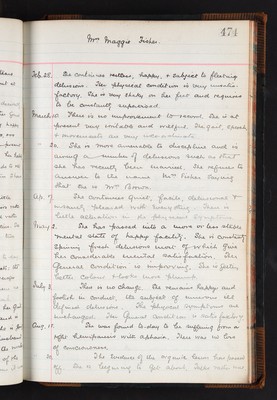 474
Mrs Maggie Fisher.
Feb. 28. She continues restless, happy, & subject to fleeting
delusions. Her physical condition is very unsatis-
factory. She is very shaky on her feet and requires
to be constantly supervised.
March 10. There is no improvement to record. She is at
present very irritable and
& movements are very
20. She is more amenable to discipline and is
a number of delusions such as that
she has recently been married. She refuses to
answer to the name Mrs Fisher saying
that she is Mrs Brown.
Ap. 7. She continues quiet, facile, delusional &
pleased with everything. There is
little alteration in the physical symptoms.
May 2. She has passed into a more or less
mental state of happy facility. She is constantly
fresh delusions most of which give
her considerable mental satisfaction. The
General Condition is improving. She is fatter,
better Colour & looks more
July 2. There is no change. She remains happy and
foolish in conduct, the subject of numerous
delusions. The Physical Symptoms are
unchanged. Her General Condition is satisfactory.
Aug. 15. She was found to-day to be suffering from a
right hemiparesis with aphasia. There was no loss
of consciousness.
The of the has passed
off. She is beginning to get about.